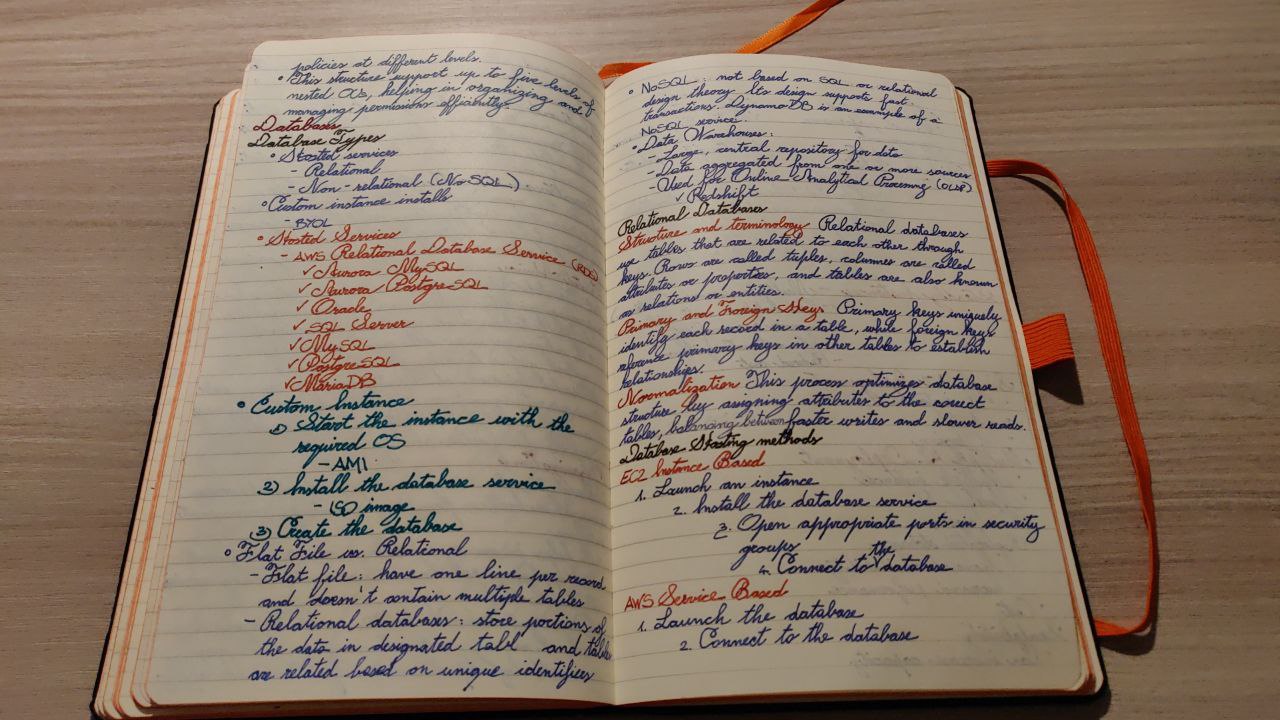 policies at different levels.
• This structure support up to five levels of
nested OUs, helping in organizing and
managing permissions efficiently.
Databases
Database Types
• Hosted services
- Relational
- Non-relational (NoSQL)
• Custom instance installs
BYOL
• Hosted Services
- AWS Relational Database Service (RDS)
✓ Aurora MySQL
✓ Aurora PostgreSQL
✓ Oracle
✓ SQL Server
✓ MySQL
✓ PostgreSQL
✓ MariaDB
• Custom Instance
1) Start the instance with the
required OS
- AMI
2) Install the database service
- ISO image
3) Create the database
• Flat File vs. Relational
- Flat file: have one line per record
and doesn't contain multiple tables
- Relational databases: store portions of
the data in designated tabl and tables
are related based on unique identifiers
• NoSQL: not based on SQL or relational
design theory. Its design supports fast
transactions. DynamoDB is an example of a
NoSQL service.
• Data Warehouses:
- Large, central repository for data
- Data aggregated from one or more sources
- Used for Online Analytical Processing (OLAP)
✓ Redshift
Relational Databases
Structure and terminology Relational databases
use tables that are related to each other through
keys. Rows are called tuples, columns are called
attributes or properties, and tables are also known
as relations or entities.
Primary and Foreign Keys Primary keys uniquely
identify each record in a table, while foreign keys
reference primary keys in other tables to establish
relationships.
Normalization This process optimizes database
structure by assigning attributes to the correct
tables, balancing between faster writes and slower reads.
Database Hosting methods
EC2 Instance Based
1. Launch an instance
2. Install the database service
3. Open appropriate ports in security
groups
4. Connect to the database
AWS Service Based
1. Launch the database
2. Connect to the database